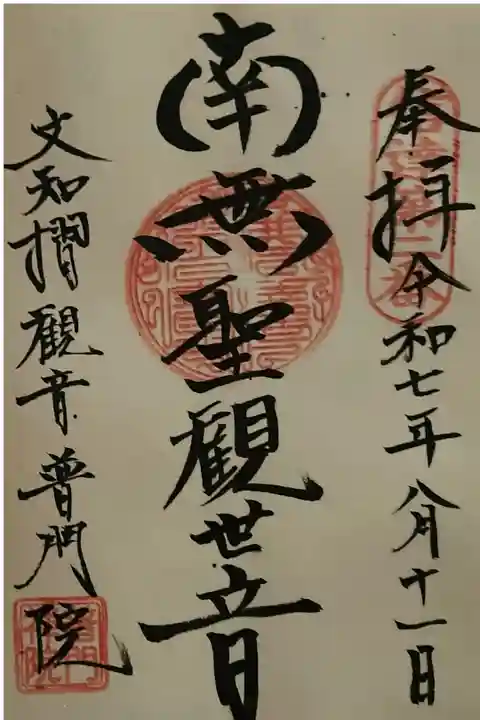 奉拝 令和七年八月十一日
南無聖観世音
文知摺観音普門院